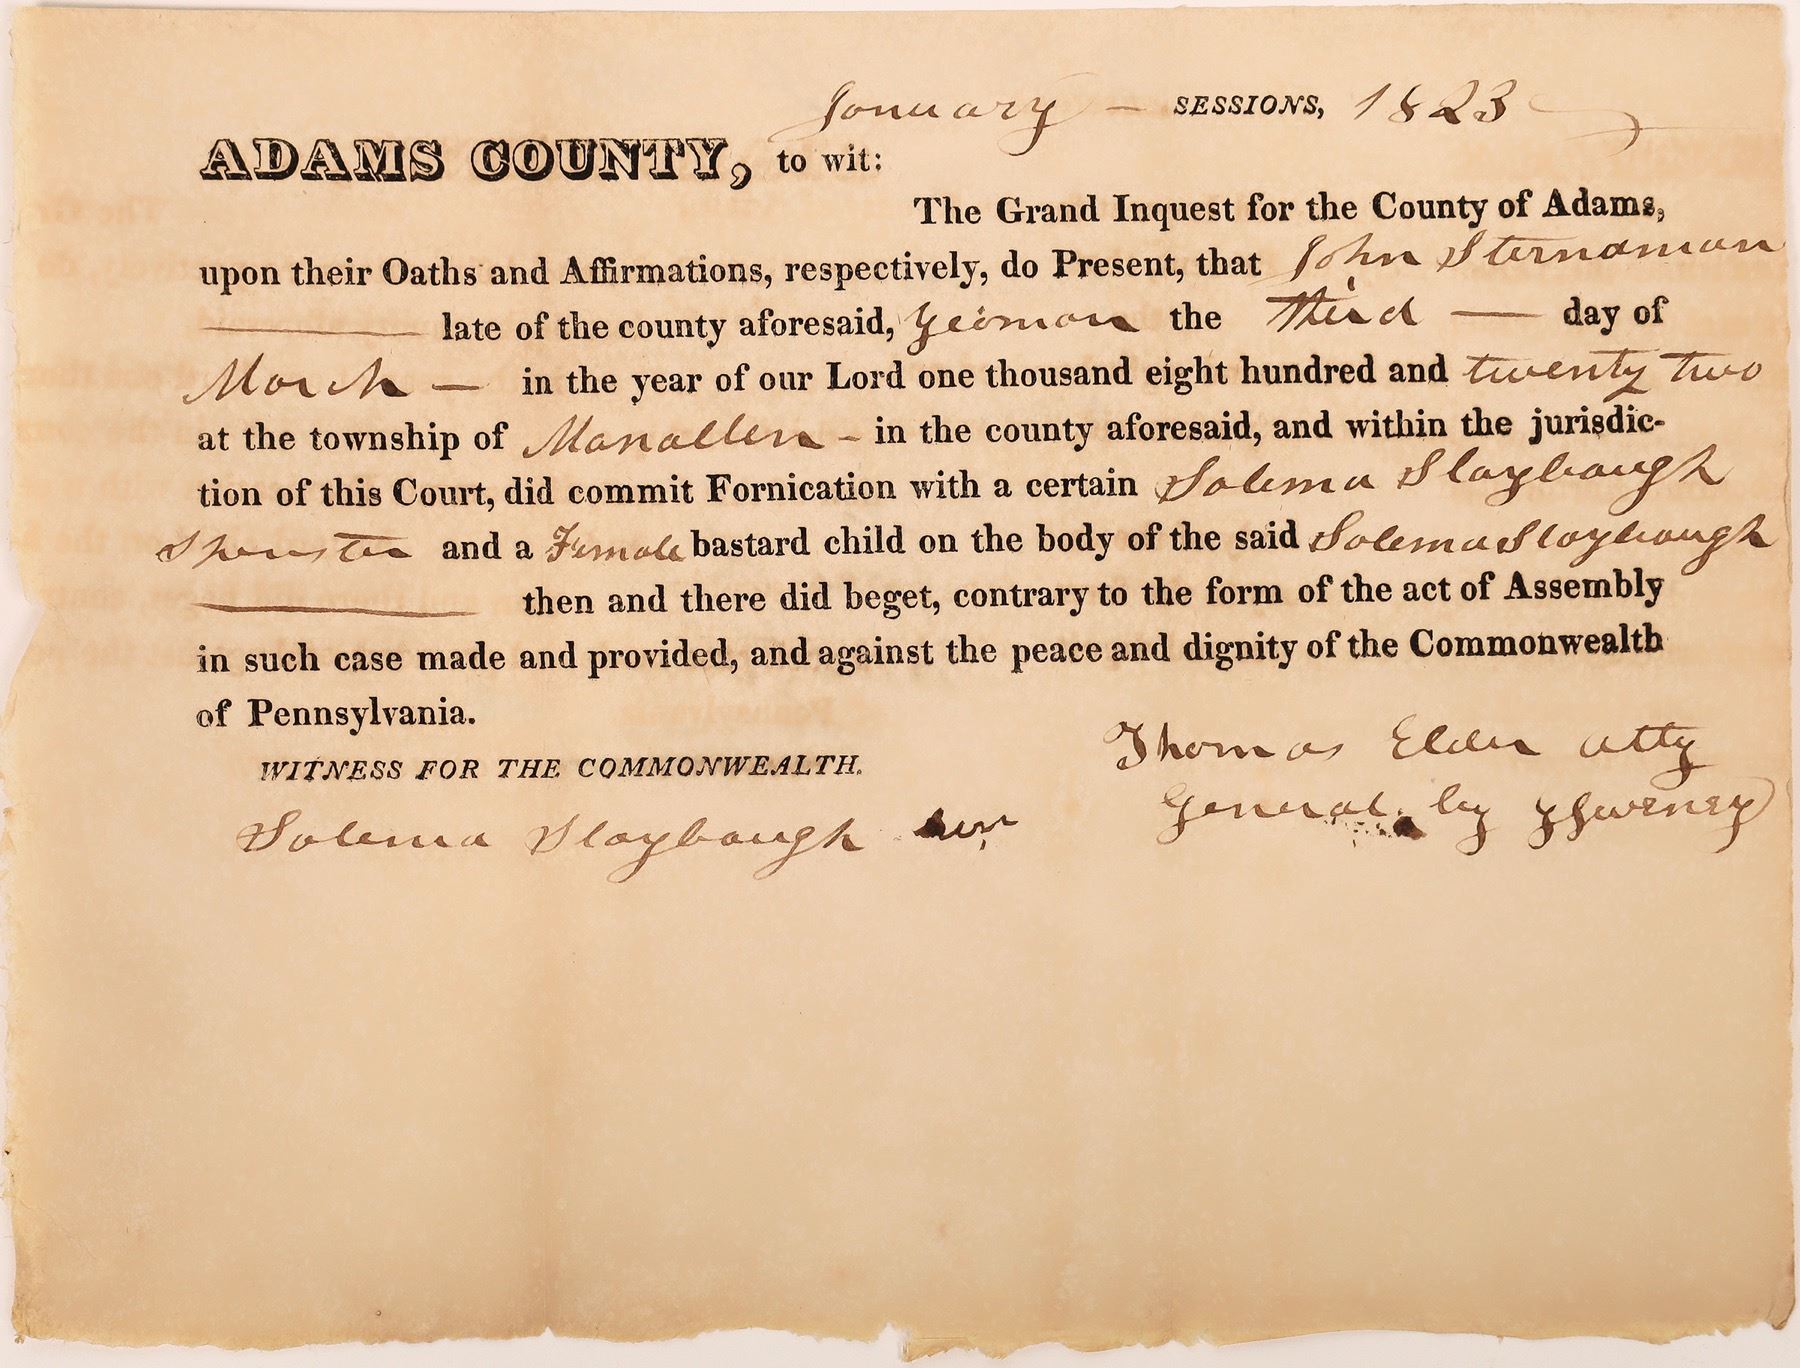 January — SESSIONS, 1823
ADAMS COUNTY, to wit:
The Grand Inquest for the County of Adams,
upon their Oaths and Affirmations, respectively, do Present, that John Sterndman
late of the county aforesaid, Yeoman the third — day of
March — in the year of our Lord one thousand eight hundred and twenty two
at the township of Manallen — in the county aforesaid, and within the jurisdic-
tion of this Court, did commit Fornication with a certain Solema Slaybaugh
Spinster and a Female bastard child on the body of the said Solema Slaybaugh
then and there did beget, contrary to the form of the act of Assembly
in such case made and provided, and against the peace and dignity of the Commonwealth
of Pennsylvania.
WITNESS FOR THE COMMONWEALTH.
Thomas Elder atty
General by
Solema Slaybaugh